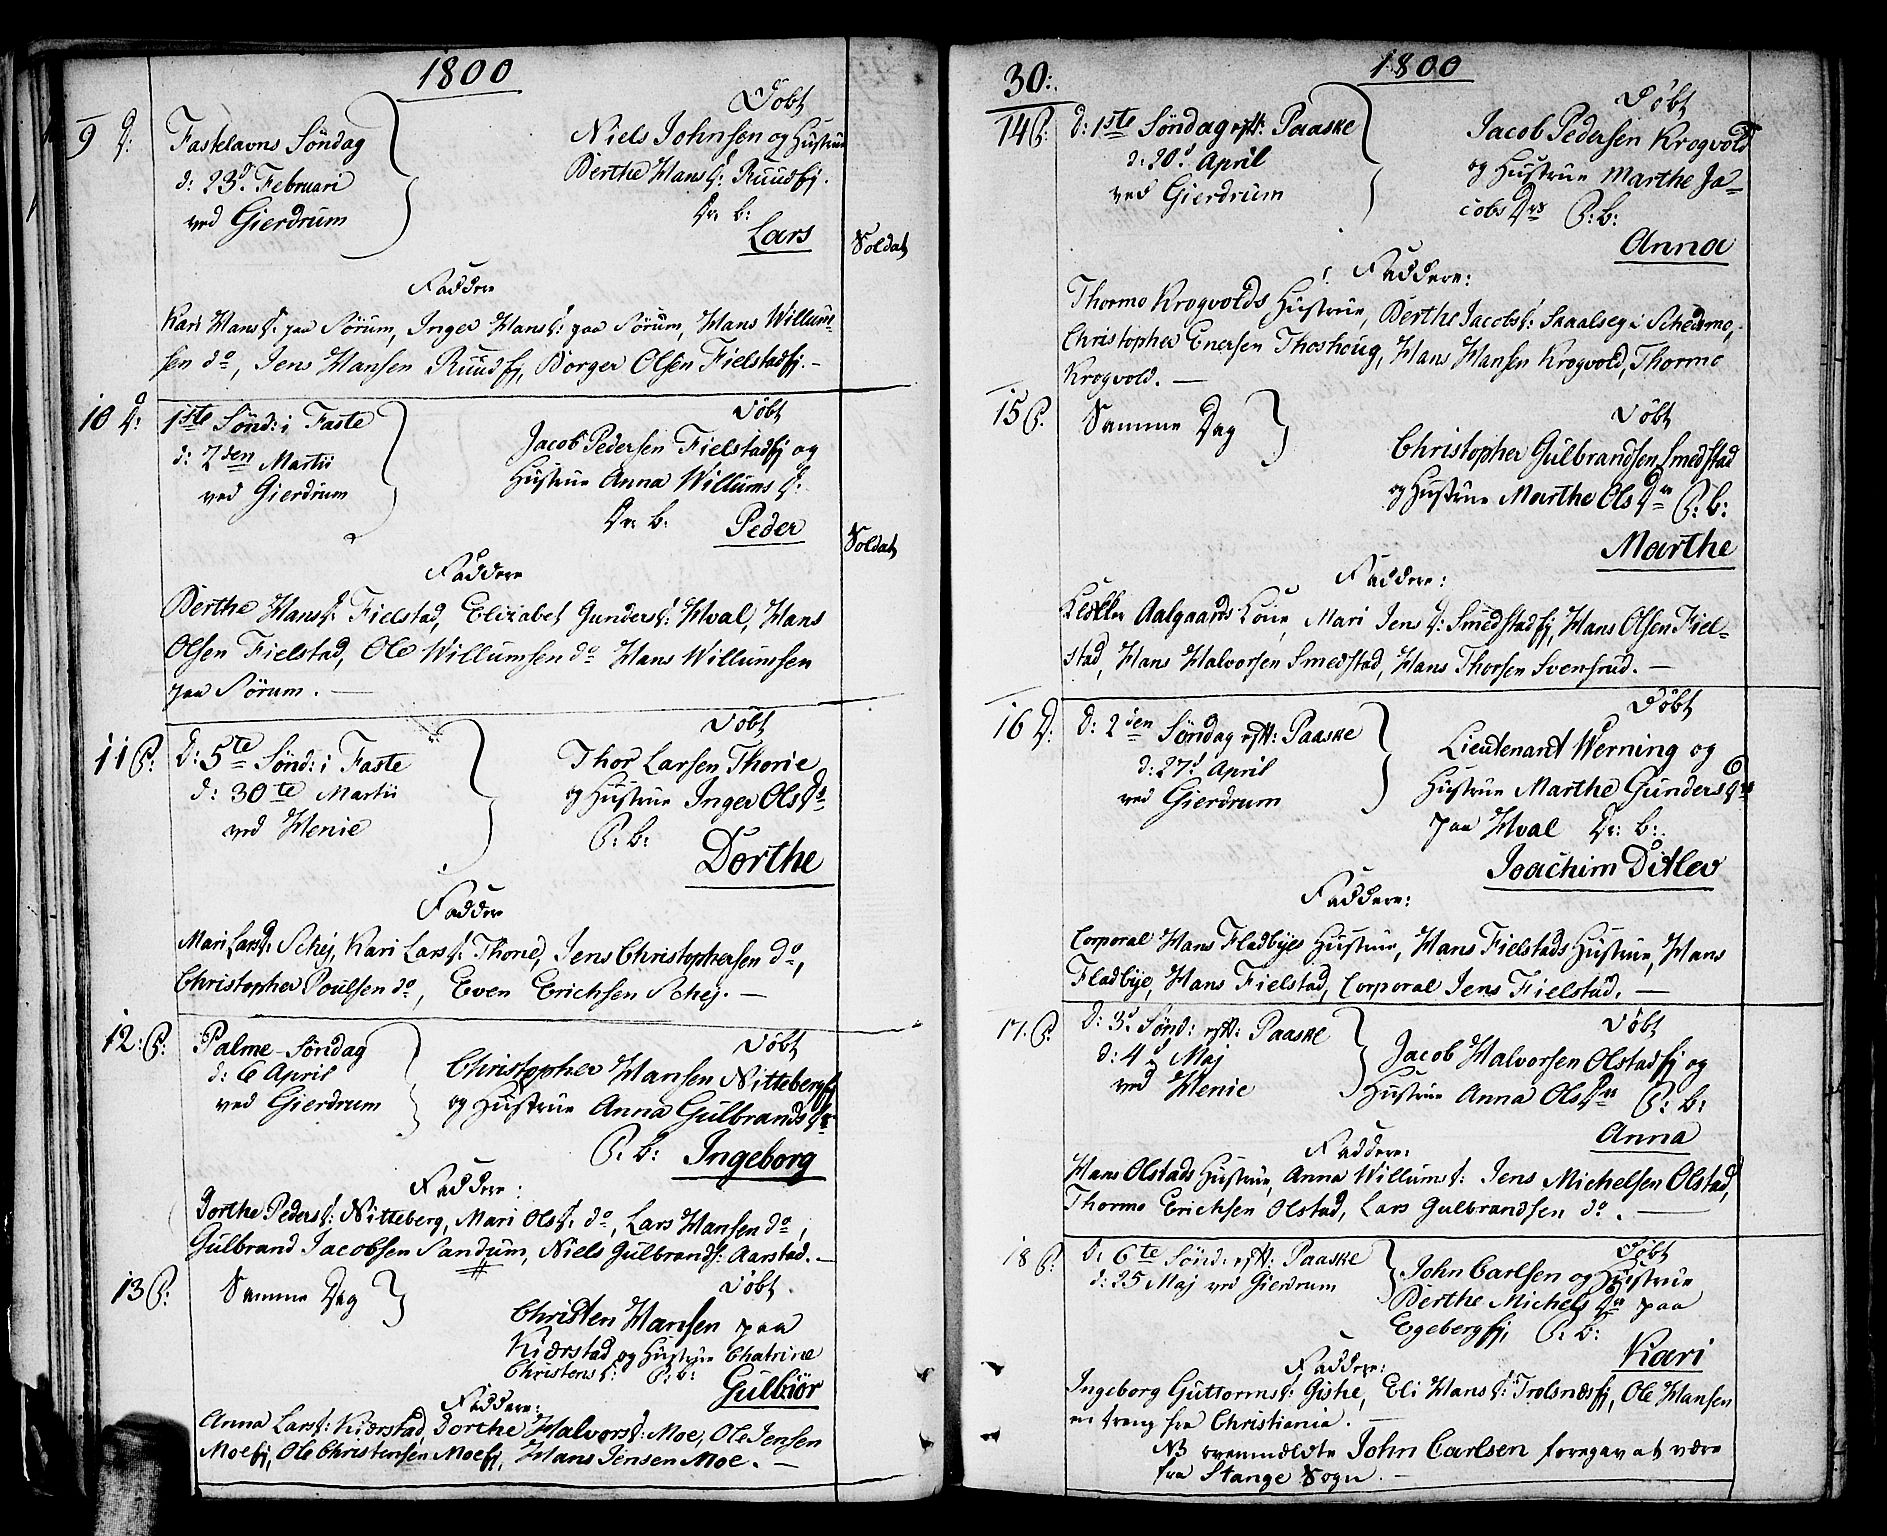 1800
9 D:
Fastelavns Söndag
d: 23d Februari
ved Gierdrum
Döbt
Niels Johnsen og Hustrue
Berthe Hans D: Ruudfj.
Dr: b:
Lars
Soldat
Faddere
Kari Hans D: paa Sörum, Inger Hans D: paa Sörum, Hans Willum-
sen do, Jens Hansen Ruudfj, Borger Olsen Fielstadfj.-
10 D:
1ste Sönd: i Faste
d: 2den Martii
ved Gierdrum
Döbt
Jacob Pedersen Fielstadfj og
Hustrue Anna Willums D:
Dr: b: Peder
Soldat
Faddere
Berthe Hans D: Fielstad, Elizabet Gunders D: Hval, Hans
Olsen Fielstad, Ole Willumsen do Hans Willumsen
paa Sörum. —
11 P:
D: 5te Sönd: i Faste
d: 30te Martii
ved Henie
Döbt
Thor Larsen Thorie
og Hustrue Inger Ols Ds
P: b:
Dorthe
Faddere
Mari Lars D: Schej, Kari Lars D: Thorie, Jens Christophersen do,
Christopher Poulsen do, Even Erichsen Schej. —
12: P:
Palme-Söndag
d: 6 April
ved Gierdrum
Döbt
Christopher Hansen Nittebergfj
og Hustrue Anna Gulbrands Dr
P: b: Ingeborg
Faddere:
Dorthe Peders D: Nitteberg, Mari Ols D: do, Lars Hansen do,
Gulbrand Jacobsen Sandum, Niels Gulbrands: Aarstad. —
13 P:
Samme Dag
Döbt.
Christen Hansen paa
Kierstad og Hustrue Chatrine
Christens D: P: b:
Gulbiör
Faddere:
Anna Lars D: Kierstad, Dorthe Halvors D: Moe, Ole Jensen
Moefj, Ole Christensen Moefj, Hans Jensen Moe. —
30:
1800
14 P:
d: 1ste Söndag eft: Paaske
d: 20d April
ved Gierdrum
Döbt
Jacob Pedersen Krogvold
og Hustrue Marthe Ja-
cobs Drs P: b:
Anna
Faddere:
Thormo Krogvolds Hustrue, Berthe Jacobs D: Skaalseg i Schedsmo,
Christopher Enersen Thoshoug, Hans Hansen Krogvold, Thormo
Krogvold. —
15 P:
Samme Dag
Döbt
Christopher Gulbrandsen Smedstad
og Hustrue Marthe Ols Dr P: b:
Marthe
Faddere:
Aalgaards Kone, Mari Jens D: Smedstadfj, Hans Olsen Fiel-
stad, Hans Halvorsen Smedstad, Hans Thorsen Svensrud. —
16 D:
D: 2den Söndag eft: Paaske
d: 27d April
ved Gierdrum
Döbt
Lieutenant Werning og
Hustrue Marthe Gunders Dr
paa Hval Dr: b:
Joachim Ditlev
Faddere:
Corporal Hans Fladbyes Hustrue, Hans Fielstads Hustrue, Hans
Fladbye, Hans Fielstad, Corporal Jens Fielstad. —
17. P:
D: 3d Sönd: eft: Paaske
d: 4d Maj
ved Henie
Döbt
Jacob Halvorsen Olstadfj og
Hustrue Anna Ols Drs P: b:
Anna
Faddere:
Hans Olstads Hustrue, Anna Willums D: Jens Michelsen Olstad,
Thormo Erichsen Olstad, Lars Gulbrandsen do. —
18 P:
D: 6te Sönd: eft: Paaske
d: 25 Maj ved Gierdrum
Döbt
John Carlsen og Hustrue
Berthe Michels Dr paa
Egebergfj, P: b:
Kari
Faddere:
Ingeborg Guttorms D: Gishe, Eli Hans D: Trolsnæsfj, Ole Hansen
en dreng fra Christiania. —
NB ovenmeldte John Carlsen foregav at være
fra Stange Sogn. —